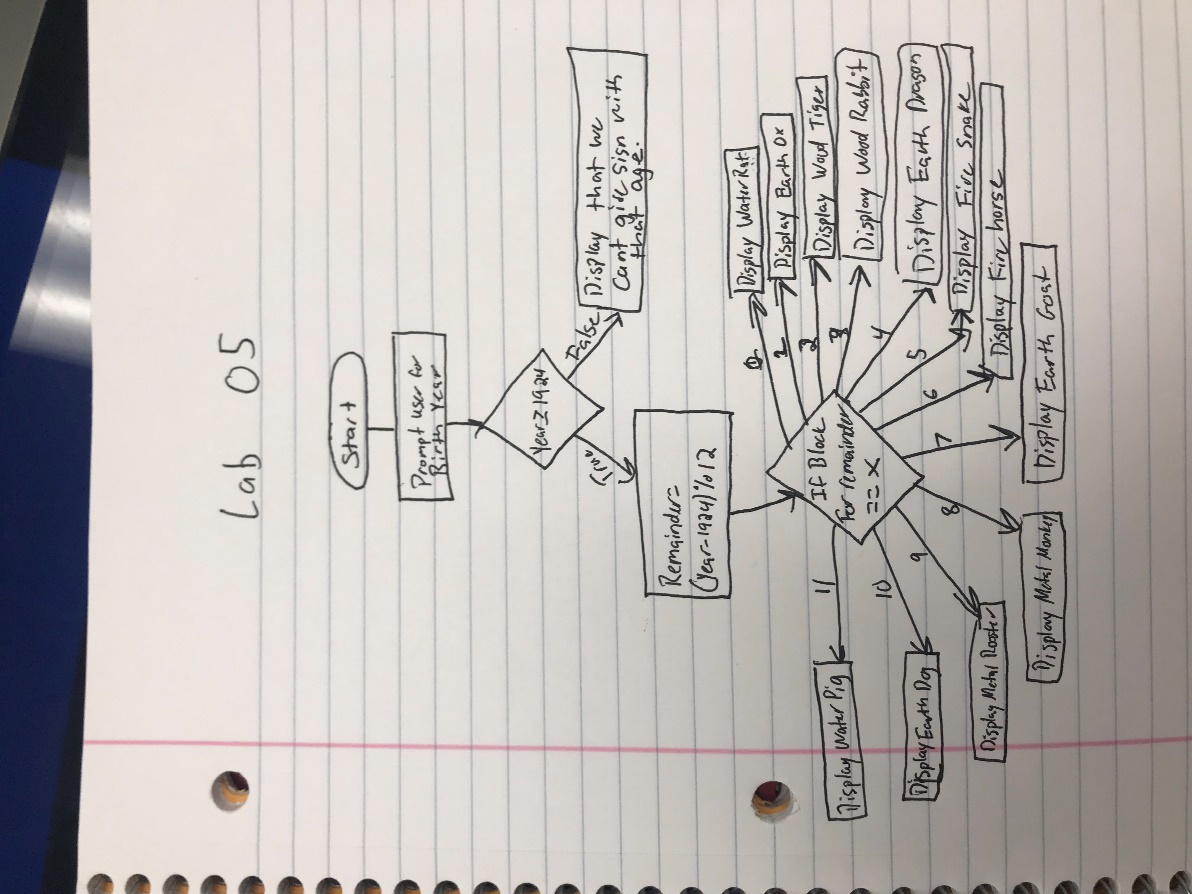 Lab 05
Start
Prompt user for
Birth Year
year≥1924
False
Display that we
Cant give sign with
that age.
Remainder=
(year-1924)%12
If Block
For remainder
== X
0
Display Water Rat
Display Earth Ox
2
Display Wood Tiger
3
Display Wood Rabbit
4
Display Earth Dragon
5
Display Fire Snake
6
Display Fire horse
7
Display Earth Goat
8
Display Metal Monkey
9
Display Metal Rooster
10
Display Earth Dog
11
Display Water Pig